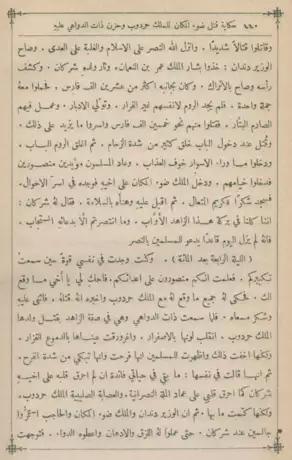 ٤٤٠ حكاية قتل ضوء المكان للملك حردوب وحزن ذات الدواهي عليه
وقاتلوا قتالاً شديدًا . وانزل الله النصر على الاسلام والغلبة على العدى . وصاح
الوزير دندان : خذوا بثار الملك عمر بن النعمان . وثار ولده شركان . وكشف
رأسه وصاح بالاتراك . وكان بجانبه اكثر من عشرين الف فارس . فحملوا معه
حملة واحدة . فلم يجد الروم لانفسهم غير الفرار . وتولي الادبار . وعمل فيهم
الصارم البتّار . فقتلوا منهم نحو خمسين الف فارس واسروا ما يزيد على ذلك .
وقُتل عند دخول الباب خلق كثير من شدة الزحام . ثم اغلق الروم الباب .
ودخلوا ورا الاسوار خوف العذاب . وعاد المسلمون مؤيدين منصورين
فدخلوا خيامهم . ودخل الملك ضوء المكان على اخيه فوجده في اسرّ الاحوال .
فسجد شكرًا للكريم المتعال . ثم اقبل عليه وهنأه بالسلامة . فقال له شركان :
اننا كلنا في بركة هذا الزاهد الأوّاب . وما انتصرتم الّا بدعائه المستجاب .
فانه لم يزل اليوم قاعدًا يدعو للمسلمين بالنصر
( الليلة الرابعة بعد المائة ) . وكنت وجدت في نفسي قوة حين سمعت
تكبيركم . فعلمت انكم منصورون على اعدائكم . فاحك لي يا أخي ما وقع
لك . فحكى له جميع ما وقع له مع الملك حردوب واخبره انه قتله . فاثنى عليه
وشكر مسعاه . فلما سمعت ذات الدواهي وهي في صفة الزاهد بقتل ولدها
الملك حردوب . انقلب لونها بالاصفرار . واغرورقت عيناها بالدموع الغزار .
ولكنها اخفت ذلك واظهرت للمسلمين انها فرحت وانها تبكي من شدة الفرح .
ثم انها قالت في نفسها : ما بقي في حياتي فائدة ان لم احرق قلبه على اخيه
شركان كما احرق قلبي على عماد الملة النصرانية . والعصابة الصليبية الملك حردوب .
ولكنها كتمت ما بها . ثم ان الوزير دندان والملك ضوء المكان والحاجب استمروا
جالسين عند شركان . حتى عملوا له اللزق والادهان واعطوه الدواء . فتوجهت